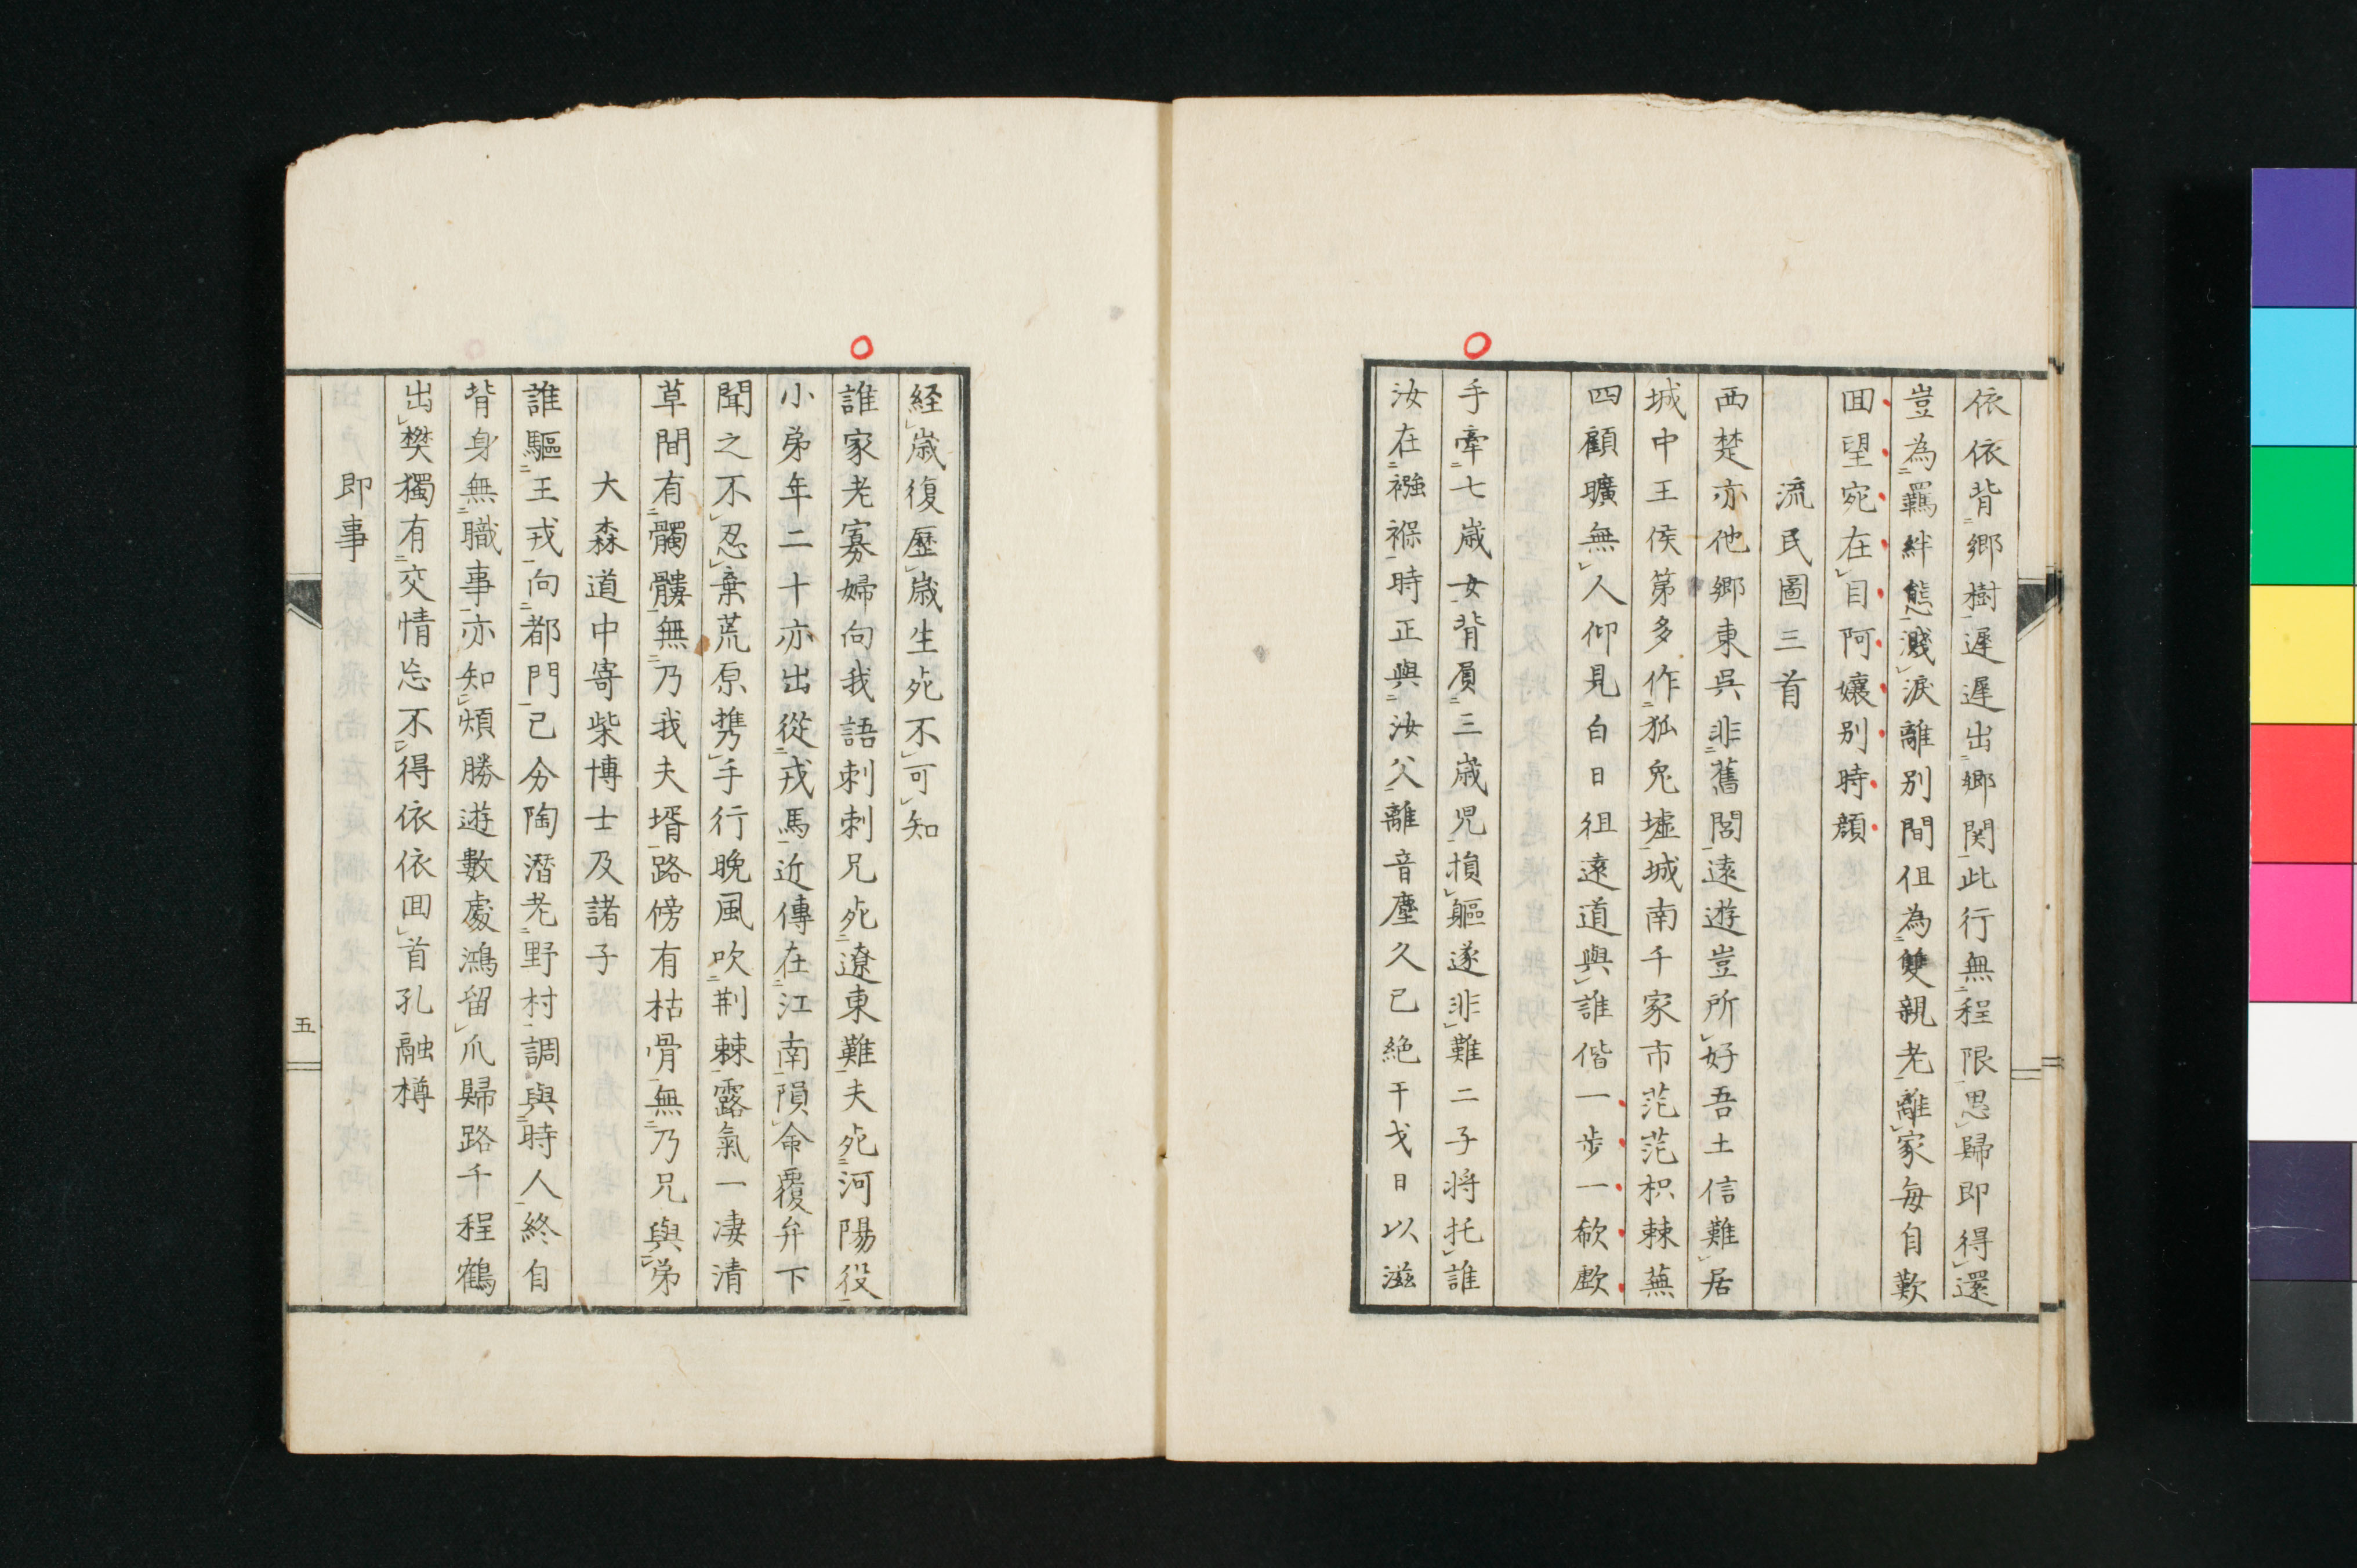 依依背郷樹遅遅出郷関此行無程限思歸即得還
豈為羈絆態濺涙離別間但為雙親老離家毎自歎
囬望宛在目阿孃別時顔
流民圖三首
西楚亦他郷東呉非舊閭遠遊豈所好吾土信難居
城中王侯第多作狐兎墟城南千家市茫茫枳棘蕪
四顧曠無人仰見白日徂遠道與誰偕一歩一欷歔
手牽七歳女背負三歳児損軀遂非難二子将托誰
汝在襁褓時正與汝父離音塵久已絶干戈日以滋
経歳復歴歳生死不可知
誰家老寡婦向我語刺刺兄死遼東難夫死河陽役
小弟年二十亦出從戎馬近傳在江南隕命覆弁下
聞之不忍棄荒原携手行晩風吹荊棘露氣一凄清
草間有髑髏無乃我夫壻路傍有枯骨無乃兄與弟
大森道中寄柴博士及諸子
誰驅王戎向都門已分陶潛老野村調與時人終自
背身無職事亦知煩勝遊數處鴻留爪歸路千程鶴
出樊獨有交情忘不得依依囬首孔融樽
即事
五